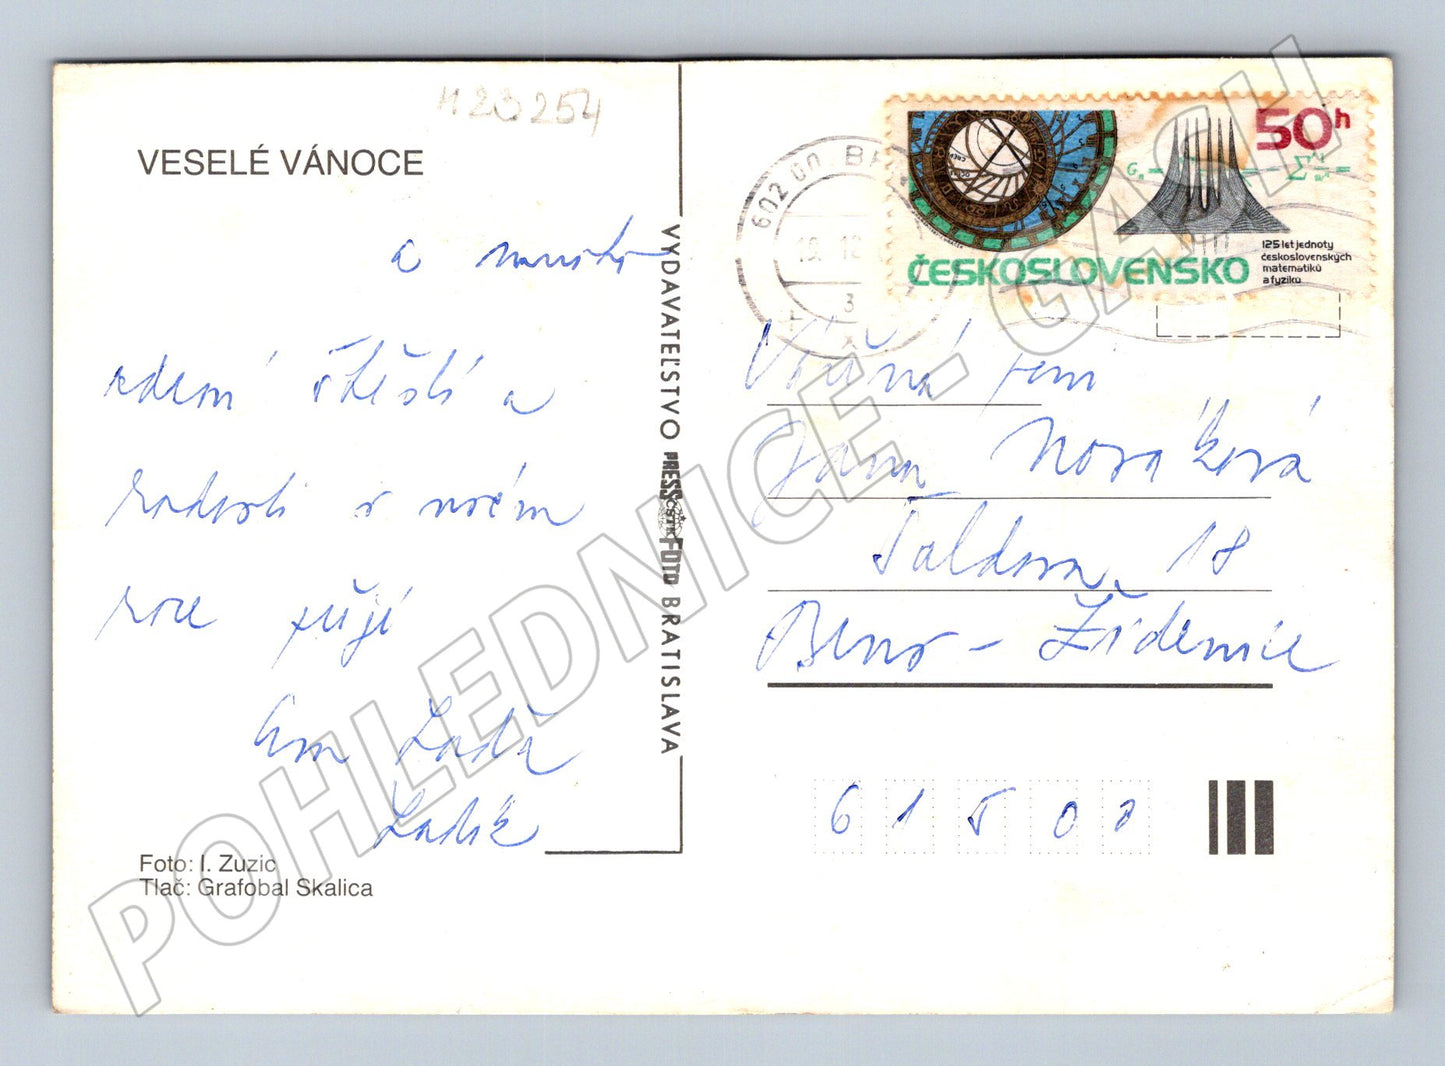 H23254
VESELÉ VÁNOCE
a mnoho
zdraví štěstí a
radosti v novém
roce přejí
Láďa
Ladík
Foto: I. Zuzic
Tlač: Grafobal Skalica
VYDAVATEĽSTVO PRESSFOTO BRATISLAVA
ČSTK
602 00 BR
19. 12
3
x
50h
ČESKOSLOVENSKO
125 let jednoty
československých
matematiků
a fyziků
Vážená paní
Jana Nováková
Taldova 18
Brno - Židenice
615 00
POHLEDNICE - GASH